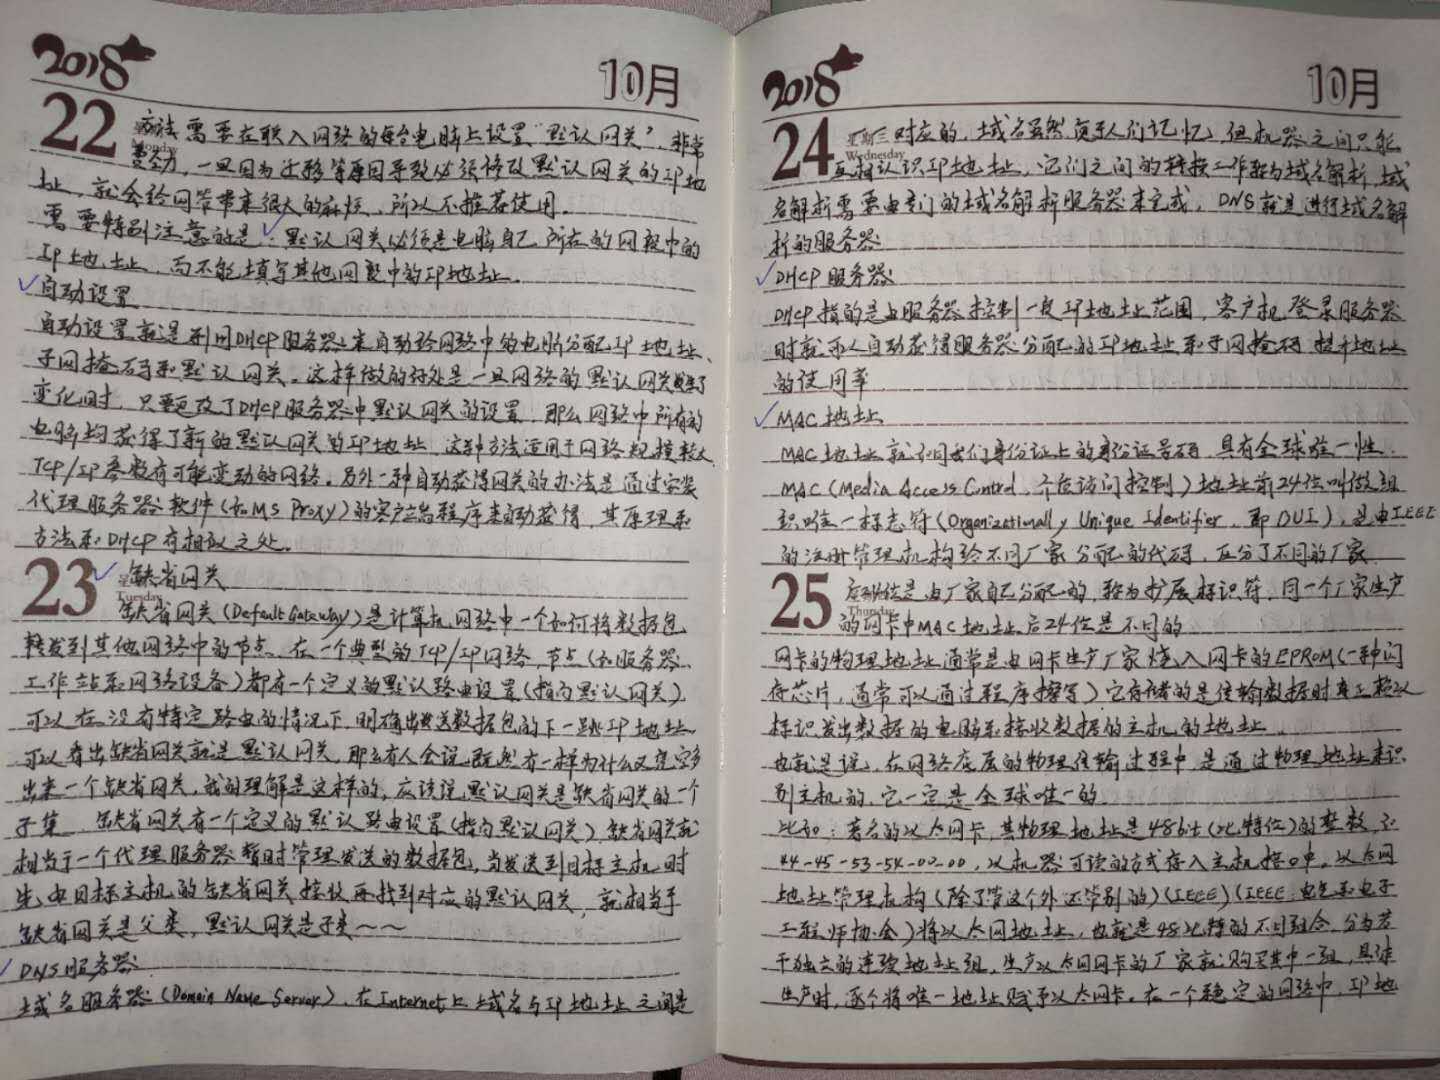 2018
10月
22
Monday
方法需要在联入网络的每台电脑上设置“默认网关”，非常
费劲，一旦因为迁移等原因导致必须修改默认网关的IP地
址，就会给网管带来很大的麻烦，所以不推荐使用。
需要特别注意的是：默认网关必须是电脑自己所在的网段中的
IP地址，而不能填写其他网段中的IP地址。
自动设置
自动设置就是利用DHCP服务器来自动给网络中的电脑分配IP地址、
子网掩码和默认网关。这样做的好处是一旦网络的默认网关发生了
变化时，只要更改了DHCP服务器中默认网关的设置，那么网络中所有的
电脑均获得了新的默认网关的IP地址，这种方法适用于网络规模较大、
TCP/IP参数有可能变动的网络。另外一种自动获得网关的办法是通过安装
代理服务器软件(如MS Proxy)的客户端程序来自动获得，其原理和
方法和DHCP有相似之处。
23
Tuesday
缺省网关
缺省网关(Default Gateway)是计算机网络中一个如何将数据包
转发到其他网络中的节点，在一个典型的TCP/IP网络，节点(如服务器、
工作站和网络设备)都有一个定义的默认路由设置(指向默认网关)。
可以在没有特定路由的情况下，明确出发送数据包的下一跳IP地址。
可以看出缺省网关就是默认网关，那么有人会说，既然有一样为什么又凭空多
出来一个缺省网关，我的理解是这样的，应该说默认网关是缺省网关的一个
子集，缺省网关有一个定义的默认路由设置(指向默认网关)，缺省网关就
相当于一个代理服务器暂时管理发送的数据包，当发送到目标主机时
先由目标主机的缺省网关接收再找到对应的默认网关，就相当于
缺省网关是父类，默认网关是子类～～
DNS服务器
域名服务器(Domain Name Server)，在Internet上域名与IP地址之间是
2018
10月
24
星期三
Wednesday
对应的，域名虽然便于人们记忆，但机器之间只能
互相认识IP地址，它们之间的转换工作称为域名解析，域
名解析需要由专门的域名解析服务器来完成，DNS就是进行域名解
析的服务器
DHCP服务器
DHCP指的是由服务器控制一段IP地址范围，客户机登录服务器
时就可以自动获得服务器分配的IP地址和子网掩码，提升地址
的使用率
MAC地址
MAC地址就如同我们身份证上的身份证号码，具有全球唯一性
MAC(Media Access Control，介质访问控制)地址前24位叫做组
织唯一标志符(Organizationally Unique Identifier，即OUI)，是由IEEE
的注册管理机构给不同厂家分配的代码，区分了不同的厂家
25
Thursday
后24位是由厂家自己分配的，称为扩展标识符，同一个厂家生产
的网卡中MAC地址后24位是不同的
网卡的物理地址通常是由网卡生产厂家烧入网卡的EPROM(一种闪
存芯片，通常可以通过程序擦写)它存储的是传输数据时真正赖以
标识发出数据的电脑和接收数据的主机的地址
也就是说，在网络底层的物理传输过程中，是通过物理地址来识
别主机的，它一定是全球唯一的
比如：著名的以太网卡，其物理地址是48bit(比特位)的整数，如
44-45-53-54-00-00，以机器可读的方式存入主机接口中。以太网
地址管理机构(除了管这个外还管别的)(IEEE)(IEEE：电气和电子
工程师协会)将以太网地址，也就是48比特的不同组合，分为若
干独立的连续地址组，生产以太网网卡的厂家就购买其中一组，具体
生产时，逐个将唯一地址赋予以太网卡。在一个稳定的网络中，IP地